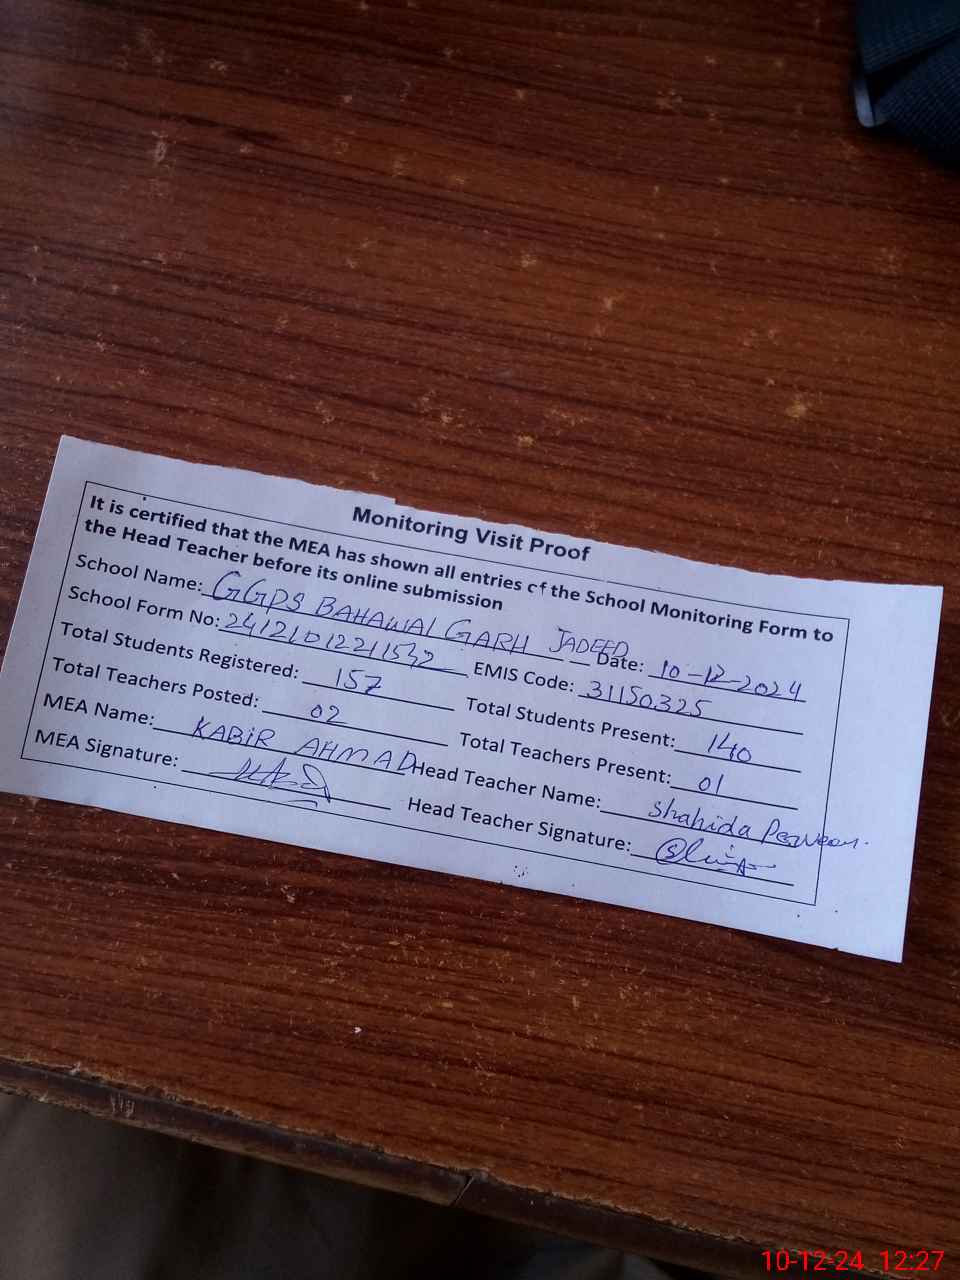 Monitoring Visit Proof
It is certified that the MEA has shown all entries of the School Monitoring Form to
the Head Teacher before its online submission
School Name: GGPS BAHAWAL GARH JADEED Date: 10-12-2024
School Form No: EMIS Code: 31150325
Total Students Registered: 157 Total Students Present: 140
Total Teachers Posted: 02 Total Teachers Present: 01
MEA Name: KABIR AHMAD Head Teacher Name: Shahida Perveen.
MEA Signature: Head Teacher Signature:
10-12-24 12:27